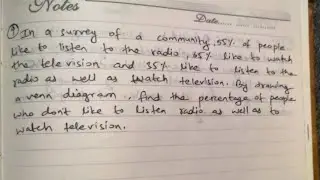 Notes
Date.....
① In a survey of a community, 55% of people
like to listen to the radio, 65% like to watch
the television and 35% like to listen to the
radio as well as watch television. By drawing
a venn diagram, find the percentage of people
who don't like to listen radio as well as to
watch television.